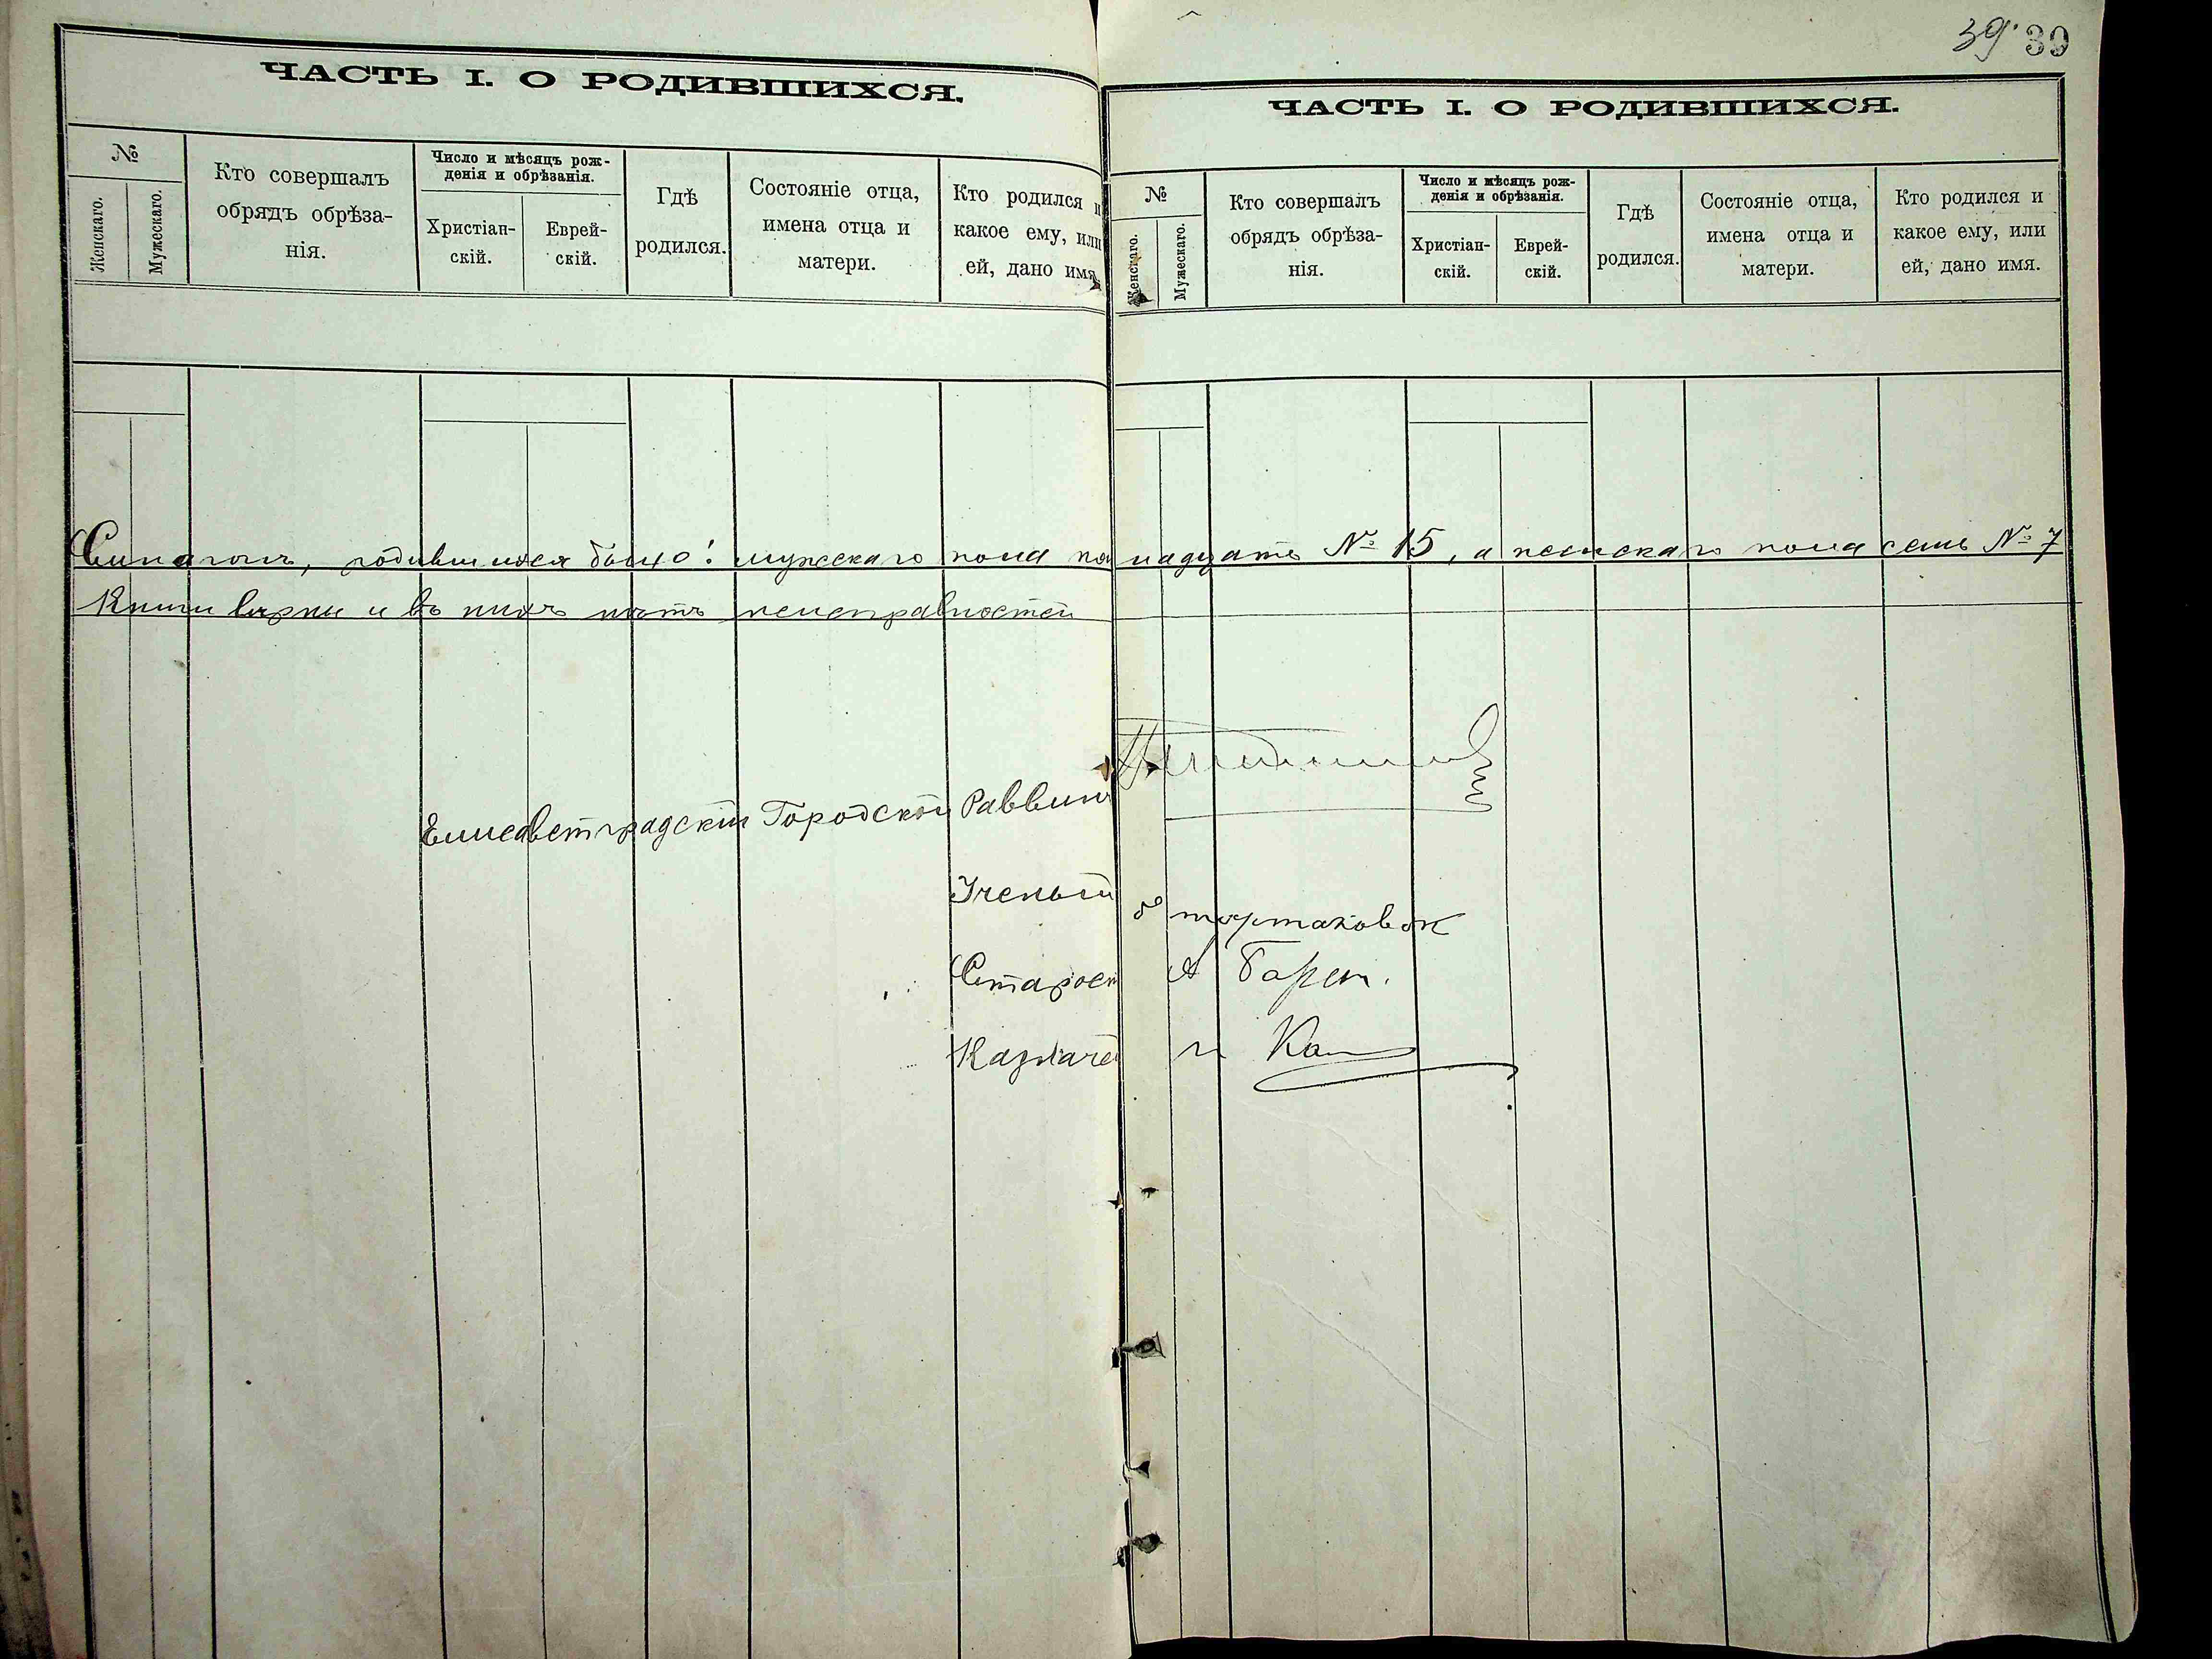 39 39
ЧАСТЬ I. О РОДИВШИХСЯ.
№
Женскаго.
Мужескаго.
Кто совершалъ
обрядъ обрѣза-
нія.
Число и мѣсяцъ рож-
денія и обрѣзанія.
Христіан-
скій.
Еврей-
скій.
Гдѣ
родился.
Состояніе отца,
имена отца и
матери.
Кто родился и
какое ему, или
ей, дано имя
ЧАСТЬ I. О РОДИВШИХСЯ.
№
Женскаго.
Мужескаго.
Кто совершалъ
обрядъ обрѣза-
нія.
Число и мѣсяцъ рож-
денія и обрѣзанія.
Христіан-
скій.
Еврей-
скій.
Гдѣ
родился.
Состояніе отца,
имена отца и
матери.
Кто родился и
какое ему, или
ей, дано имя.
родившихся было: мужскаго пола пя надцать № 15, а женскаго пола семь № 7
Книги вѣрны и въ нихъ нѣтъ неисправностей
Елисаветградскій Городской Раввинъ
Ученый
Старос А
Казначе